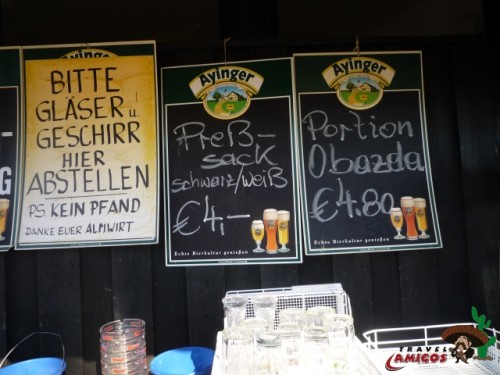 BITTE
GLÄSER u.
GESCHIRR
HIER
ABSTELLEN
PS. KEIN PFAND
DANKE EUER ALMWIRT
Ayinger
Preß-
sack
schwarz/weiß
€ 4,-
Echte Bierkultur genießen
Ayinger
Portion
Obazda
€ 4.80
Echte Bierkultur genießen
TRAVEL
AMIGOS